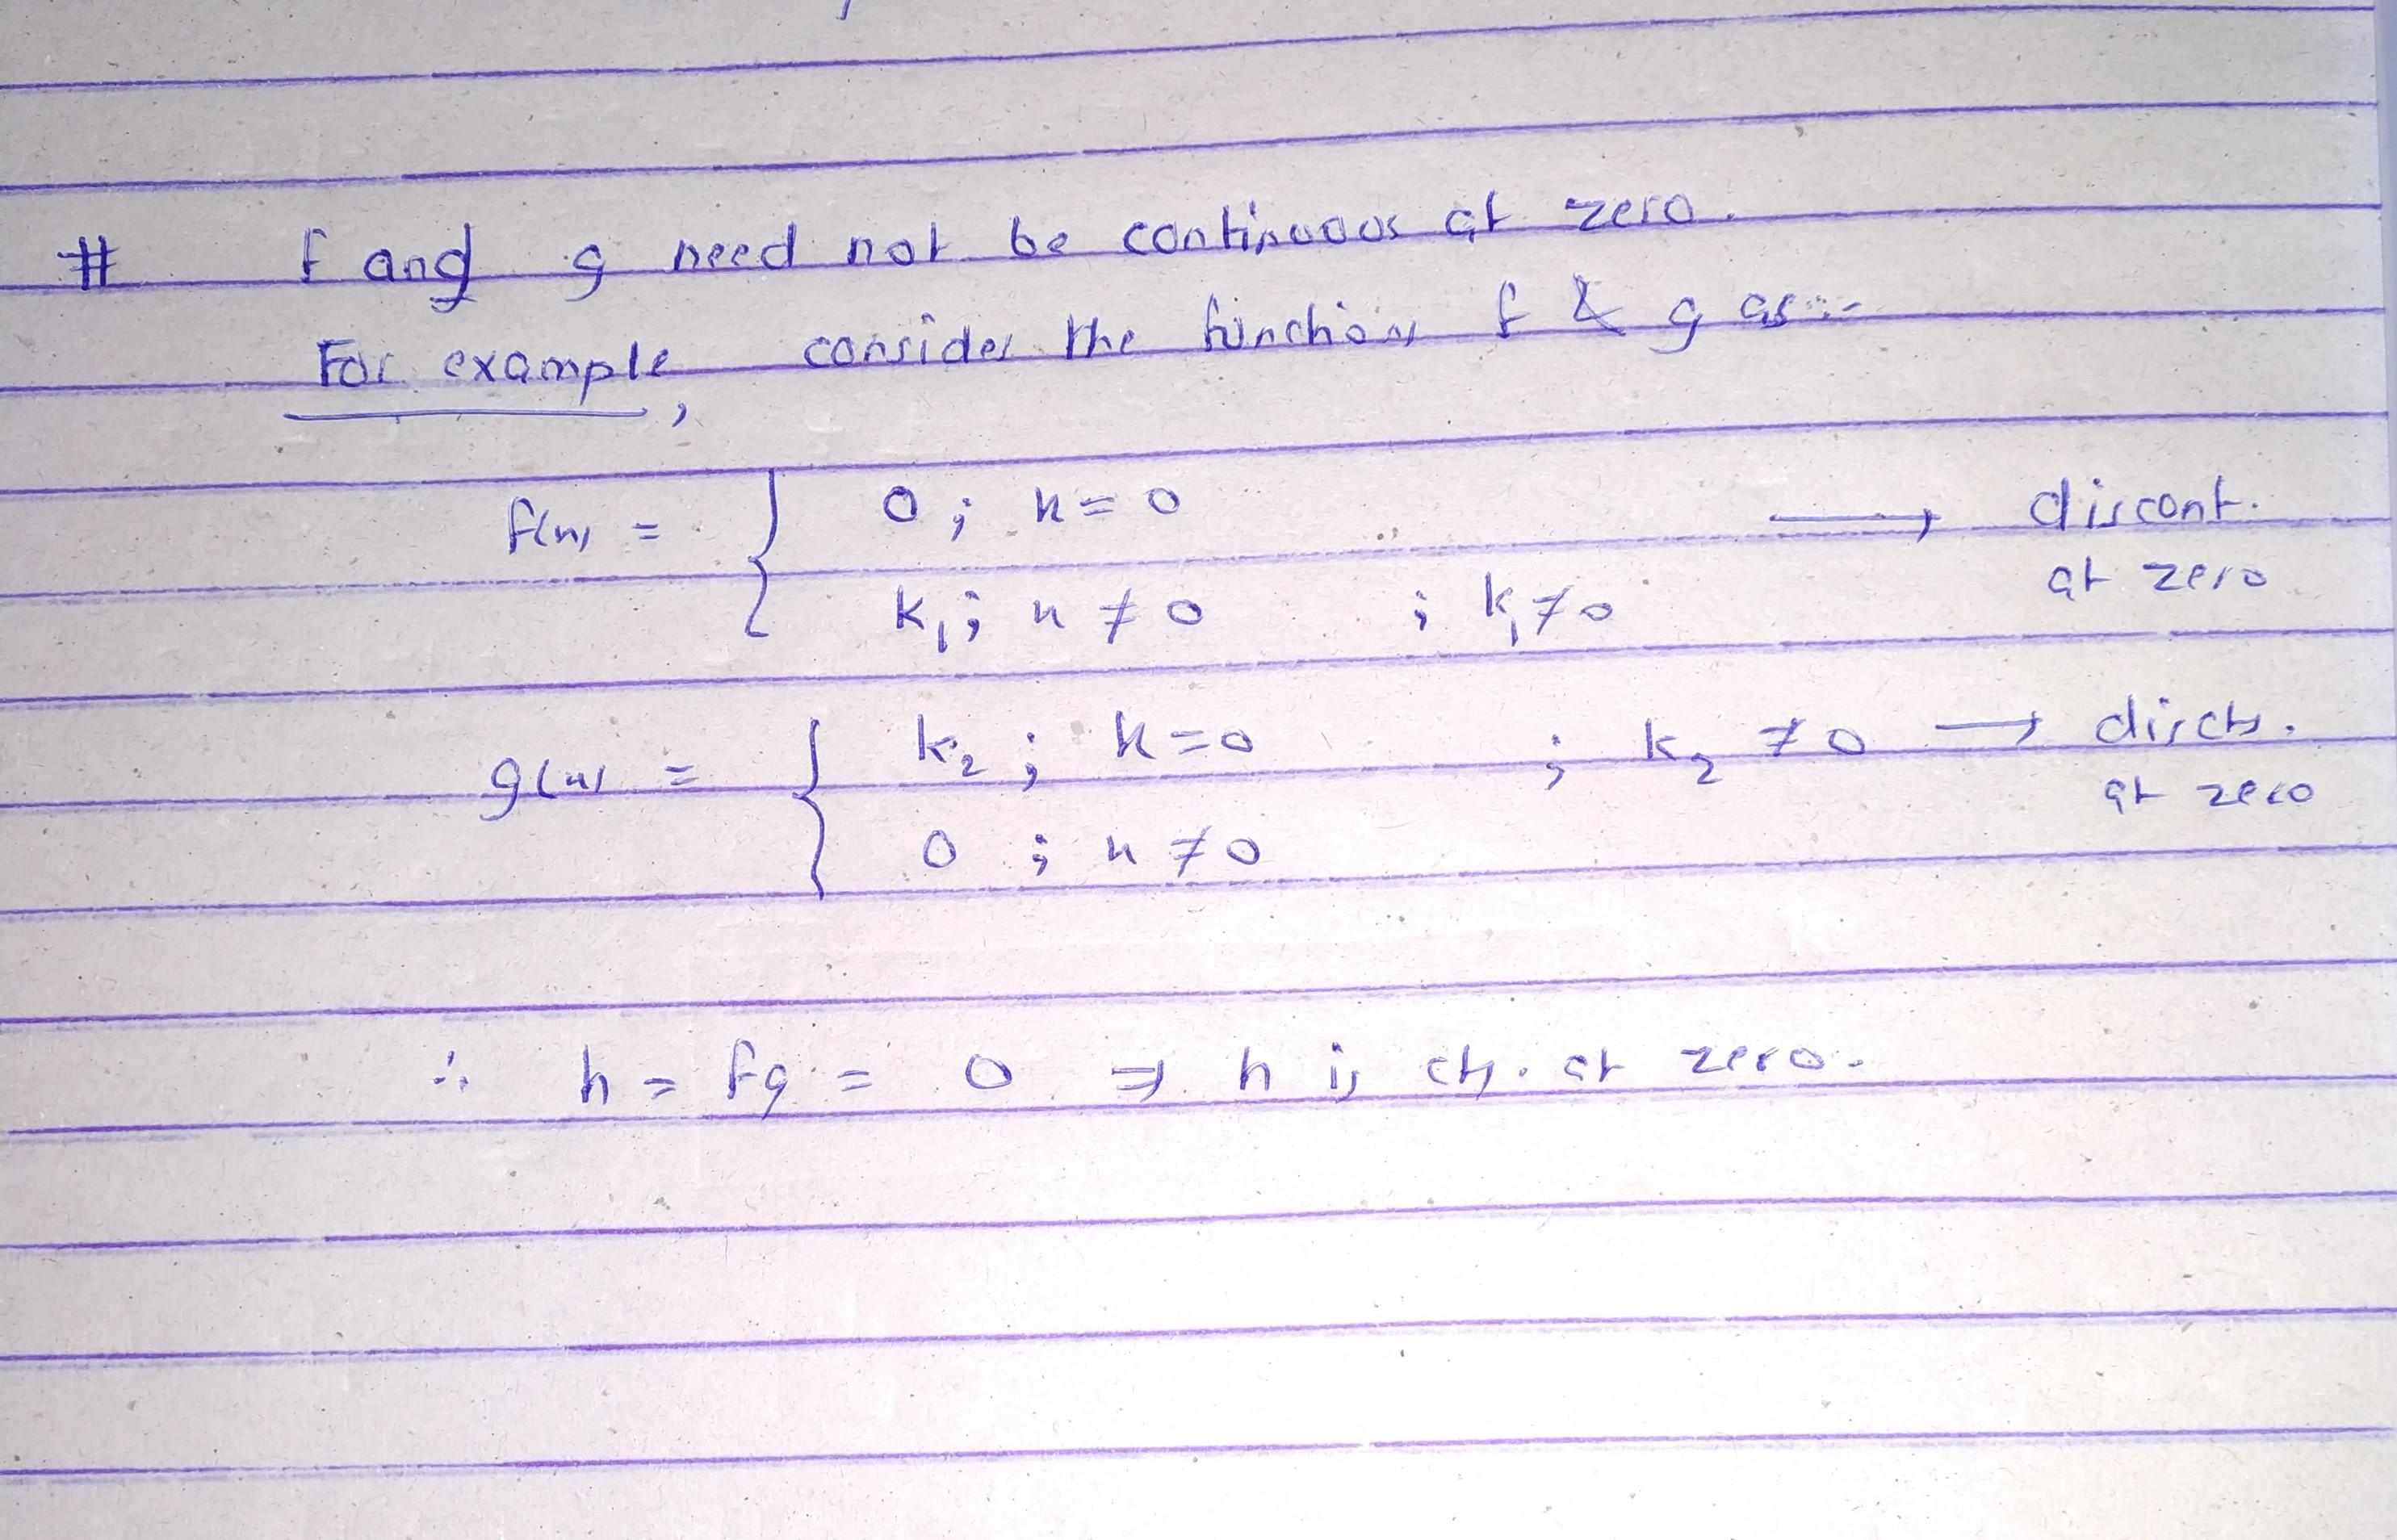 # f and g need not be continuous at zero.
For example, consider the functions f & g as:-
f(x) = { 0 ; x = 0 ⟶ discont. at zero
k₁ ; x ≠ 0 ; k₁ ≠ 0
g(x) = { k₂ ; x = 0 ; k₂ ≠ 0 ⟶ discts. at zero
0 ; x ≠ 0
∴ h = fg = 0 ⇒ h is cts. at zero.